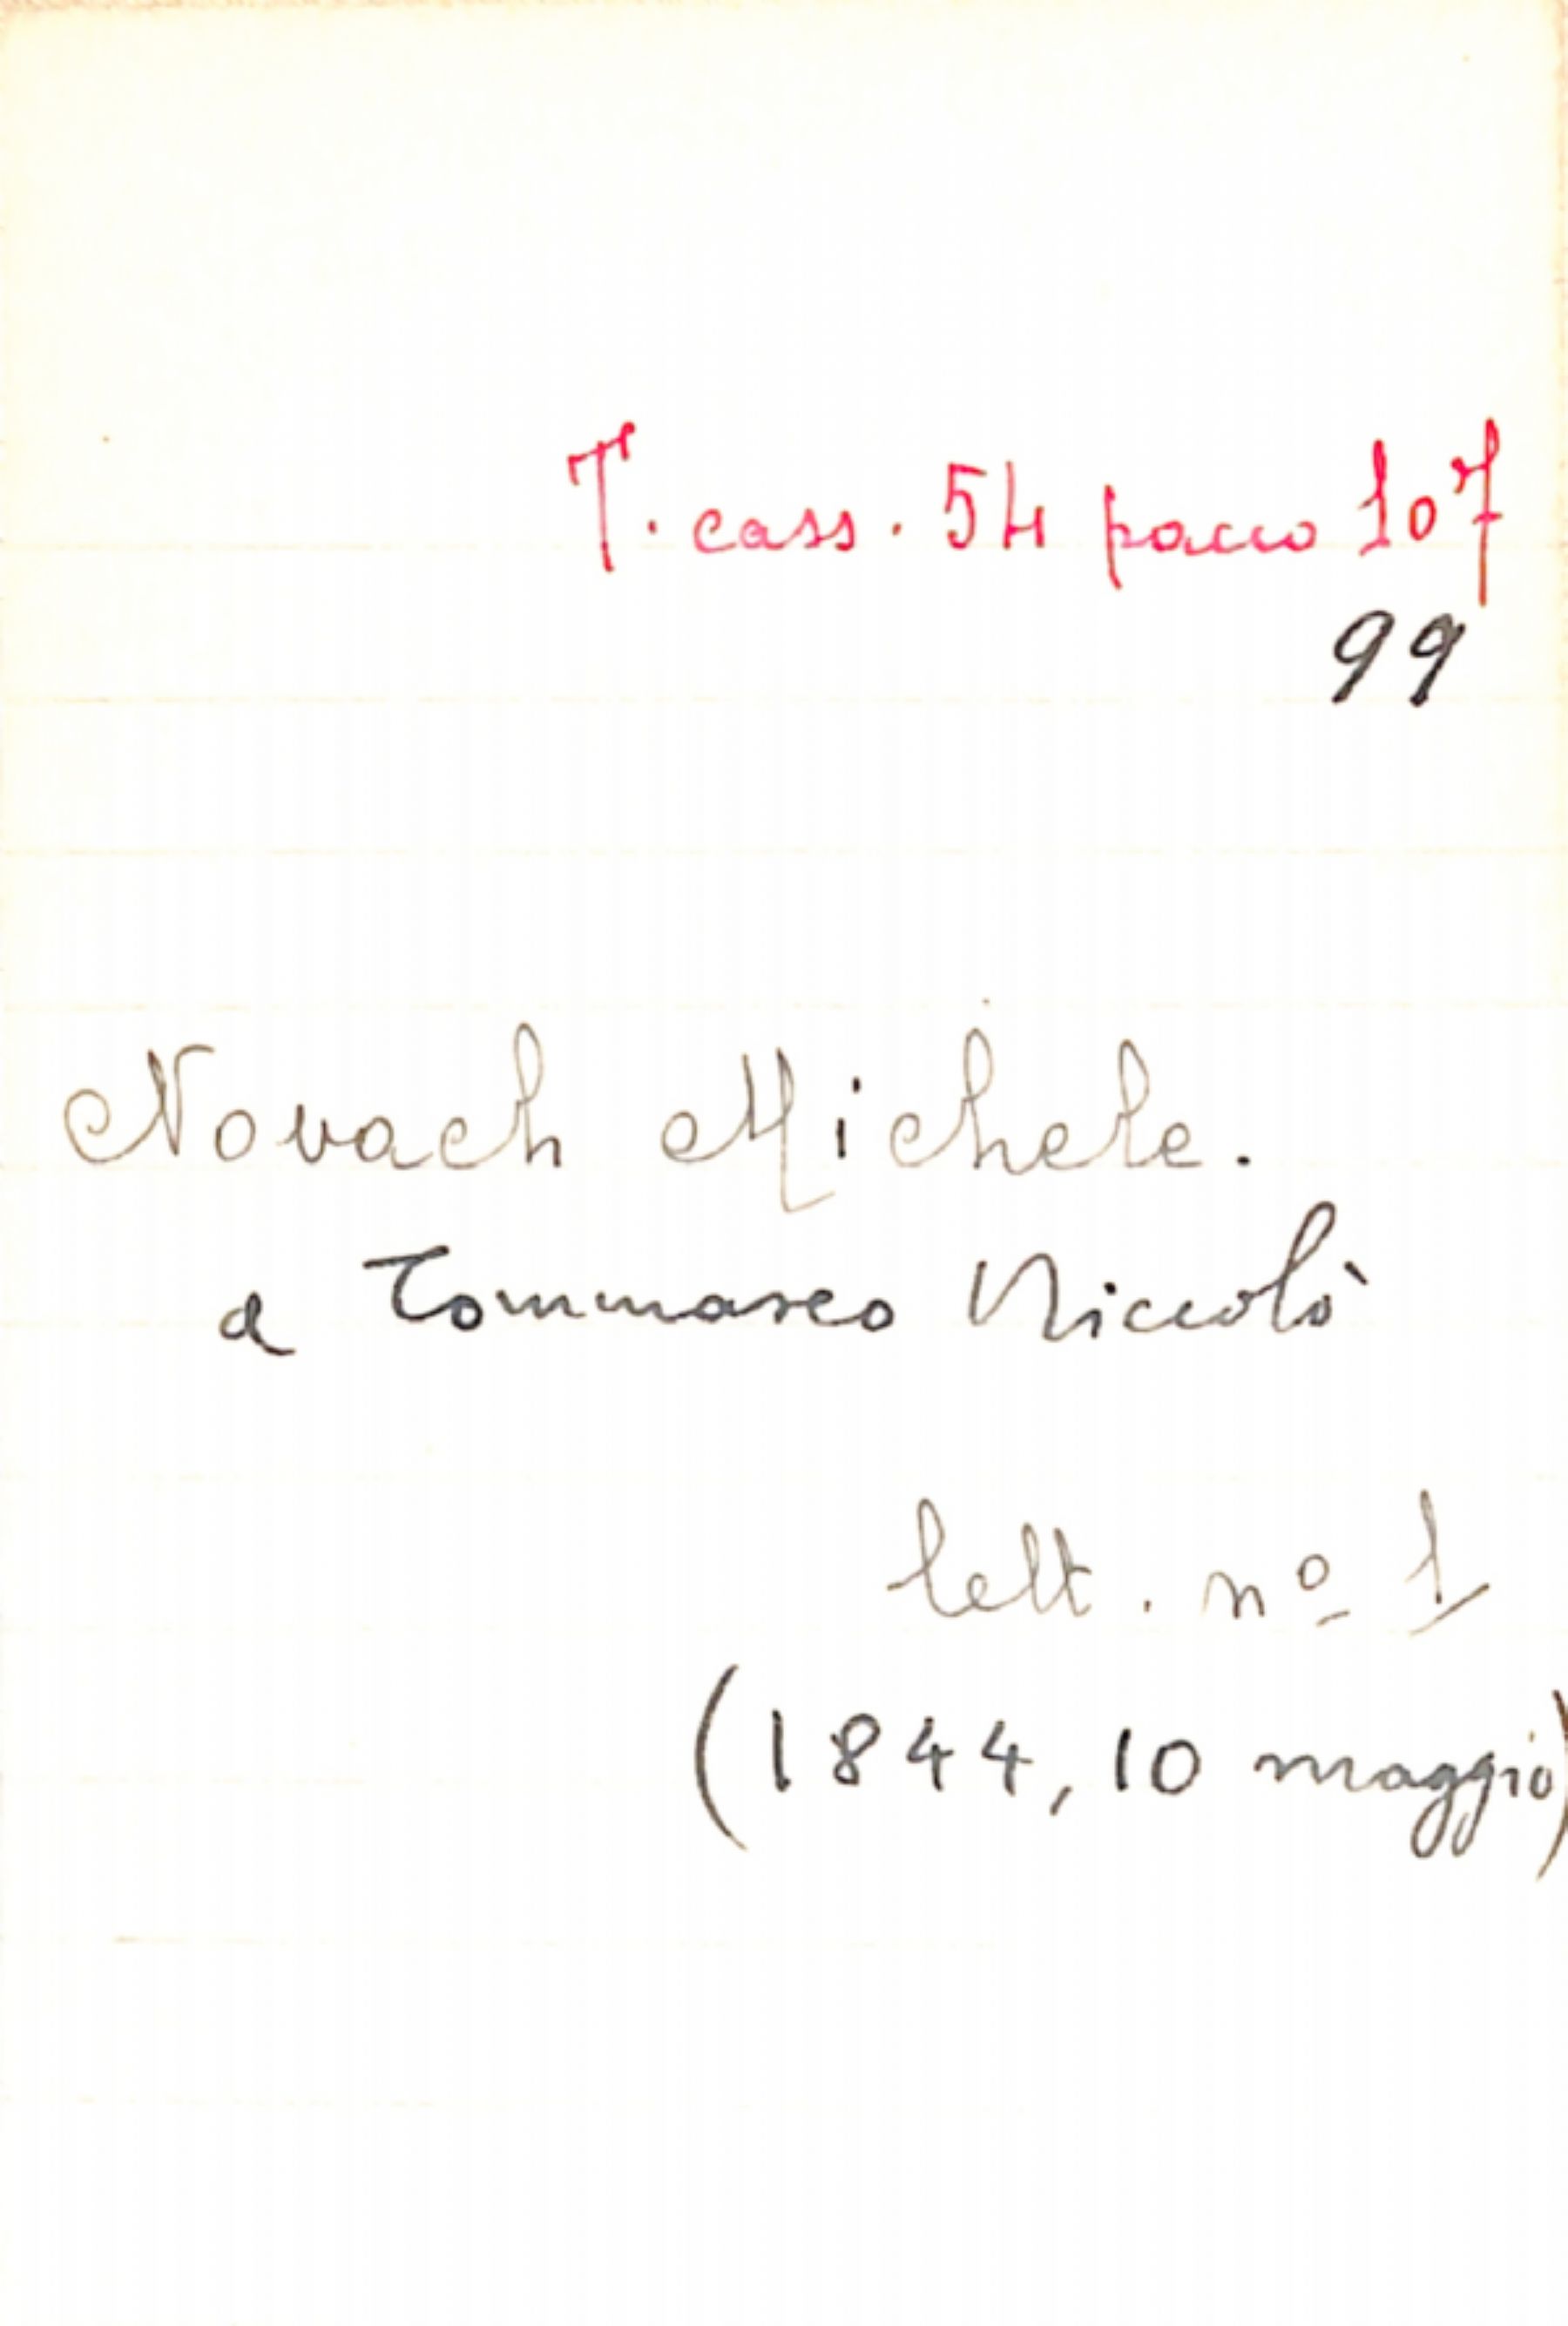 T. cass. 54 pacco 107
99
Novach Michele.
a Tommaseo Niccolò
lett. nº 1
(1844, 10 maggio)